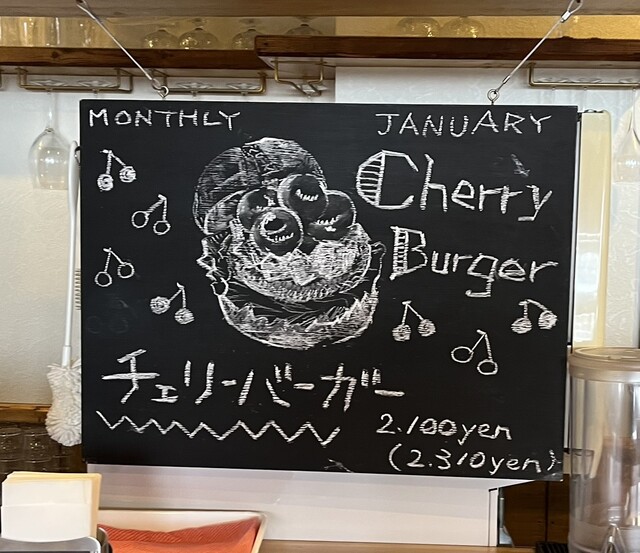 MONTHLY JANUARY
Cherry
Burger
チェリーバーガー
2.100yen
(2.310yen)